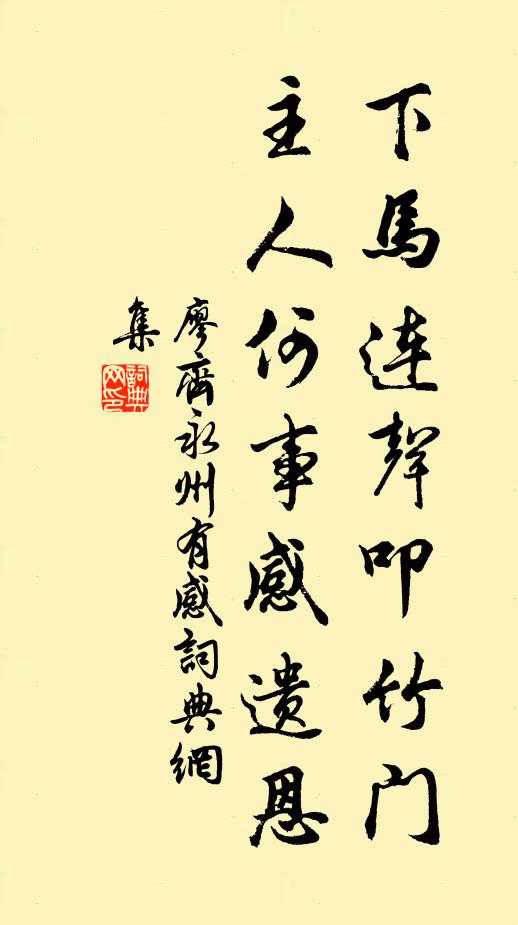 下馬連聲叩竹门
主人何事感遗恩
廖齊永州有感詞典網
集
詞典
网印